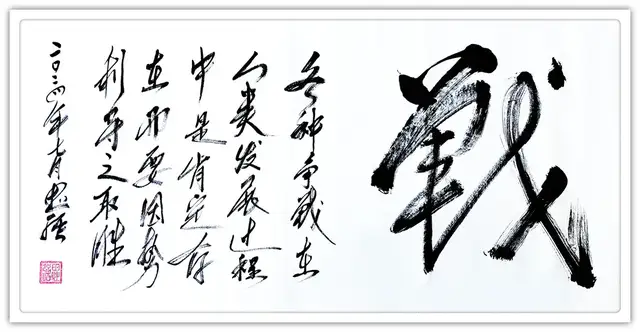 戰
各种争战在
人类发展过程
中是肯定存
在而要因势
利导之取胜
二〇二四年七月